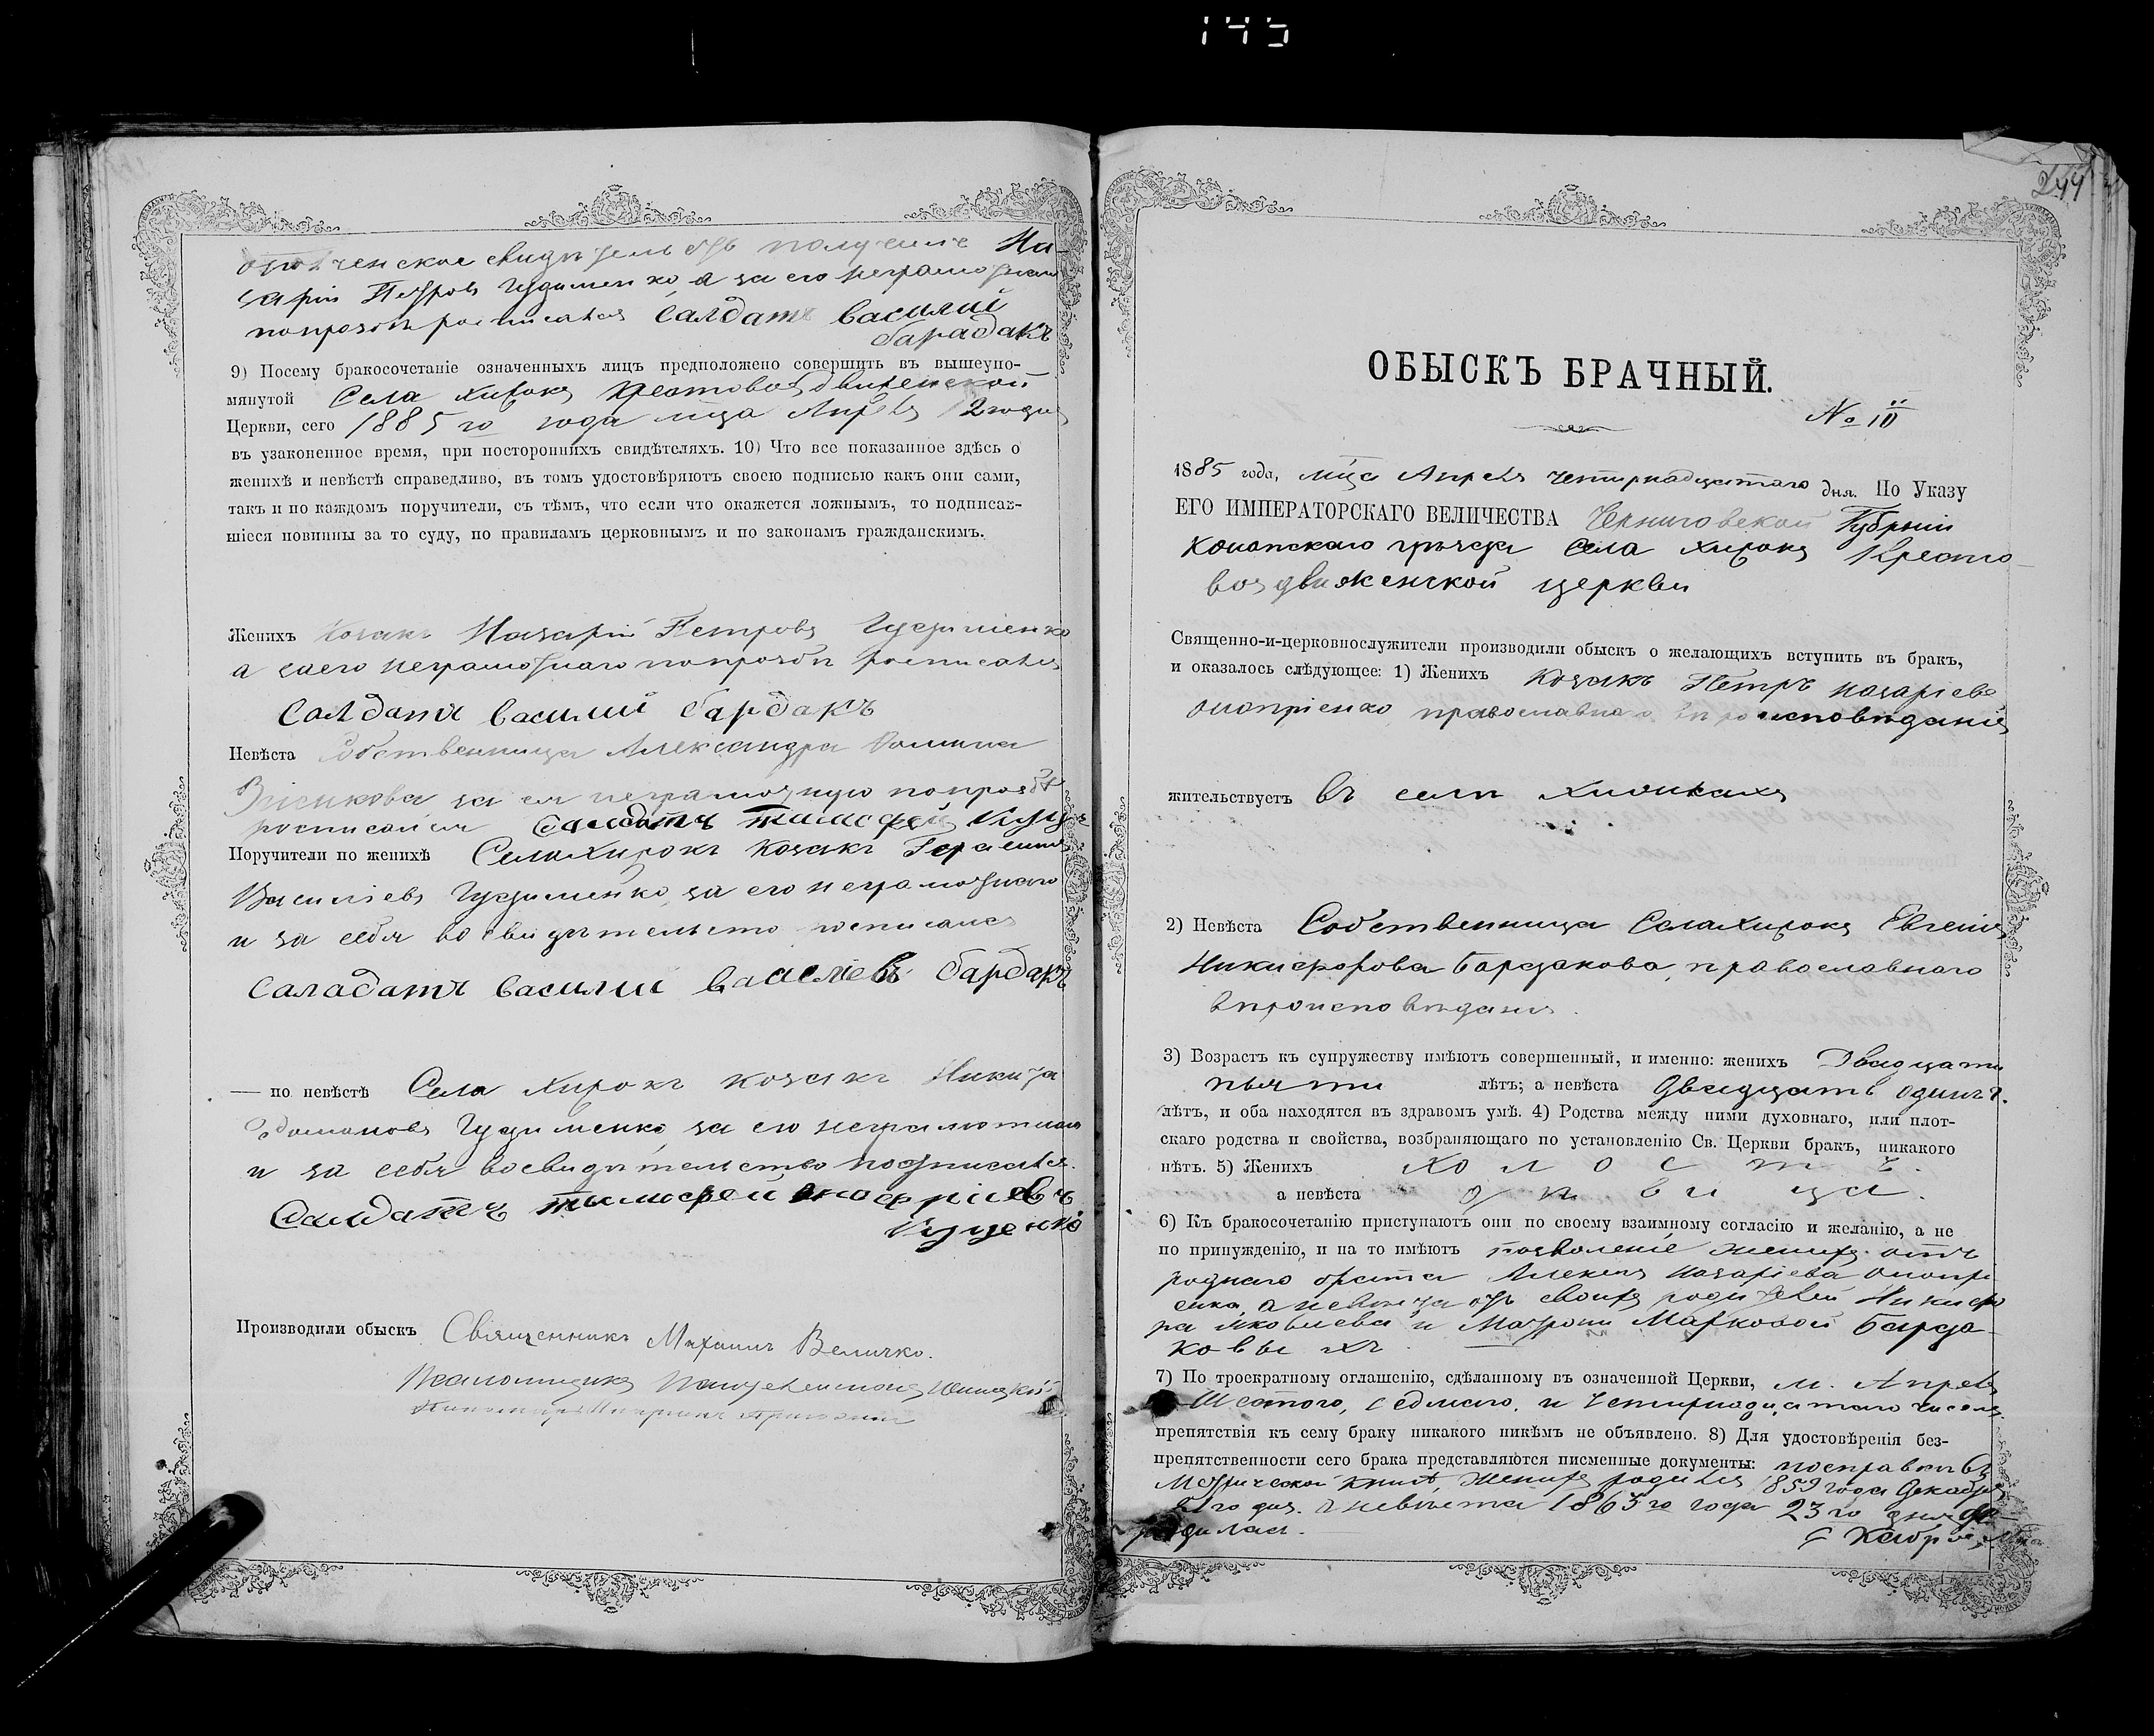 145
244
ополченское свидетельство получилъ На-
зарій Петровъ Гудименко, а за его неграмотнаго
попрозбѣ росписался Салдатъ василий
бардакъ
9) Посему бракосочетаніе означенныхъ лицъ предположено совершить въ вышеупо-
мянутой Села Хирокъ Крестовоздвиженской
Церкви, сего 1885 го года мца Апрѣля
въ узаконенное время, при постороннихъ свидѣтеляхъ. 10) Что все показанное здѣсь о
женихѣ и невѣстѣ справедливо, въ томъ удостовѣряютъ своею подписью какъ они сами,
такъ и по каждомъ поручители, съ тѣмъ, что если что окажется ложнымъ, то подписав-
шіеся повинны за то суду, по правиламъ церковнымъ и по законамъ гражданскимъ.
Женихъ Козакъ Назарій Петровъ Гудименко
а заего неграмотнаго попрозбѣ росписался
Салдатъ василий бардакъ
Невѣста Собственница Александра Фомина
за ея неграмотную попрозбѣ
росписался Салдатъ тимофей Куце
Поручители по женихѣ Села Хирокъ Козакъ Герасимъ
Василіевъ Гудименко, за его неграмотнаго
и за себя во свидѣтельство росписался
Саладатъ василий ваасліевъ бардакъ
— по невѣстѣ Села Хирокъ козакъ Никита
Романовъ Гудименко, за его неграмотнаго
и за себя восвидѣтельство подписался.
Салдатъ тымофей онофріевъ
Куценко
Производили обыскъ Священникъ Михаилъ Величко.
Псаломщикъ
ОБЫСКЪ БРАЧНЫЙ.
№ 10
1885 года, мца Апрѣля четирнадцятаго дня. По Указу
ЕГО ИМПЕРАТОРСКАГО ВЕЛИЧЕСТВА Черниговской Губрніи
Конотпскаго уѣзда Села Хирокъ Кресто-
воздвиженской церкви
Священно-и-церковнослужители производили обыскъ о желающихъ вступить въ бракъ,
и оказалось слѣдующее: 1) Женихъ Козакъ Петръ Назаріевъ
Оноприенко, православнаго вѣроисповѣданія
жительствуетъ въ селѣ
2) Невѣста Собственница Села Хирокъ Евгенія
Никифорова Бардакова, православнаго
вѣроисповѣданія.
3) Возрастъ къ супружеству имѣютъ совершенный, и именно: женихъ Двадцати
пьяти лѣтъ; а невѣста Двадцать одинъ.
лѣтъ, и оба находятся въ здравомъ умѣ. 4) Родства между ними духовнаго, или плот-
скаго родства и свойства, возбраняющаго по установленію Св. Церкви бракъ, никакого
нѣтъ. 5) Женихъ холостъ.
а невѣста дѣвица.
6) Къ бракосочетанію приступаютъ они по своему взаимному согласію и желанію, а не
по принужденію, и на то имѣютъ позволеніе женихъ отъ
роднаго брата Алексѣя Назаріева Онопрі
енка, а невѣста отъ своихъ родителей Никифо
ра Яковлева и Матрони Марковой Барда-
ковыхъ.
7) По троекратному оглашенію, сдѣланному въ означенной Церкви, м. Апрѣля
Шестого, седмаго, и четирнадцатаго чиселъ
препятствія къ сему браку никакого никѣмъ не объявлено. 8) Для удостовѣренія без-
препятственности сего брака представляются писменные документы: посправкѣ въ
Метрической книгѣ, женихъ родился 1859 года Декабря
го дня. а невѣста 1863 го года 23 го дня Де
родилась. кабря